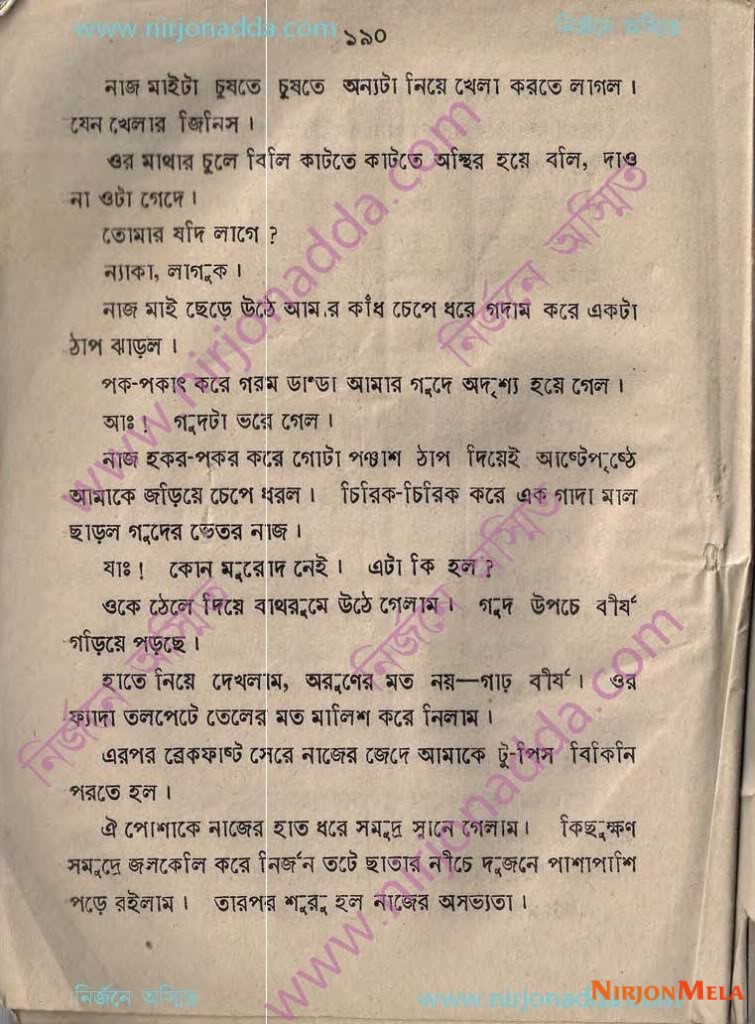 www.nirjonadda.com
১৯০
নির্জনে অস্মিত
নাজ মাইটা চুষতে চুষতে অন্যটা নিয়ে খেলা করতে লাগল।
যেন খেলার জিনিস।
ওর মাথার চুলে বিলি কাটতে কাটতে অস্থির হয়ে বলি, দাও
না ওটা গেদে।
তোমার যদি লাগে ?
ন্যাকা, লাগুক।
নাজ মাই ছেড়ে উঠে আমার কাঁধ চেপে ধরে গদাম করে একটা
ঠাপ ঝাড়ল।
পক-পকাৎ করে গরম ডান্ডা আমার গুদে অদৃশ্য হয়ে গেল।
আঃ! গুদটা ভরে গেল।
নাজ হকর-পকর করে গোটা পঞ্চাশ ঠাপ দিয়েই আষ্টেপৃষ্ঠে
আমাকে জড়িয়ে চেপে ধরল। চিরিক-চিরিক করে এক গাদা মাল
ছাড়ল গুদের ভেতর নাজ।
যাঃ! কোন মুরোদ নেই। এটা কি হল ?
ওকে ঠেলে দিয়ে বাথরুমে উঠে গেলাম। গুদ উপচে বীর্য
গড়িয়ে পড়ছে।
হাতে নিয়ে দেখলাম, অরুণের মত নয়—গাঢ় বীর্য। ওর
ফ্যাদা তলপেটে তেলের মত মালিশ করে নিলাম।
এরপর ব্রেকফাষ্ট সেরে নাজের জেদে আমাকে টু-পিস বিকিনি
পরতে হল।
ঐ পোশাকে নাজের হাত ধরে সমুদ্র স্নানে গেলাম। কিছুক্ষণ
সমুদ্রে জলকেলি করে নির্জন তটে ছাতার নীচে দুজনে পাশাপাশি
পড়ে রইলাম। তারপর শুরু হল নাজের অসভ্যতা।
www.nirjonadda.com
নির্জনে অস্মিত
www.nirjonadda.com
নির্জনে অস্মিত
নির্জনে অস্মিত
নির্জনে অস্মিত
www.nirjonadda.com
NIRJONMELA